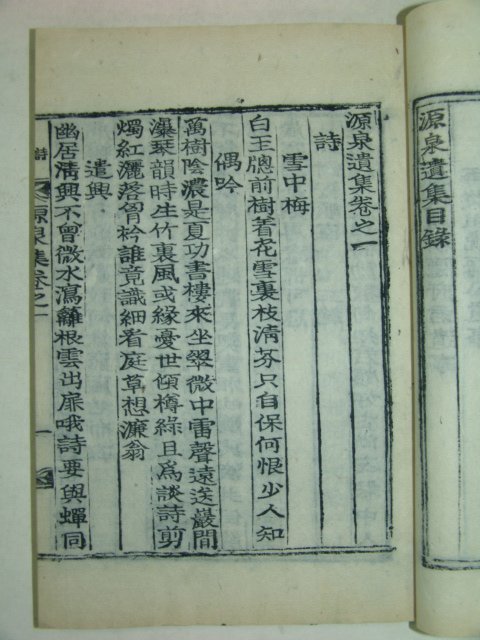 源泉遺集目錄
源泉遺集卷之一
詩
雪中梅
白玉牕前樹着花雪裏枝清芬只自保何恨少人知
偶吟
萬樹陰濃是夏功書樓來坐翠微中雷聲遠送巖間
瀑琴韻時生竹裏風或緣憂世傾樽綠且爲談詩剪
燭紅灑落胷衿誰竟識細看庭草想濂翁
遣興
幽居淸興不曾微水瀉籬根雲出扉哦詩要與蟬同
詩
源泉集卷之一
一